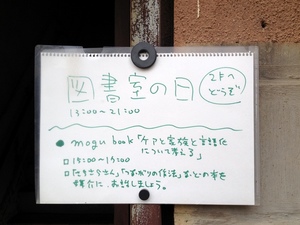 図書室の日
2Fへ
どうぞ
13:00~21:00
● mogu book「ケアと家族と言語化
について考える」
□ 15:00~17:00
□「せきららさん」「つながりの作法」などの本を
媒介に、お話しましょう。